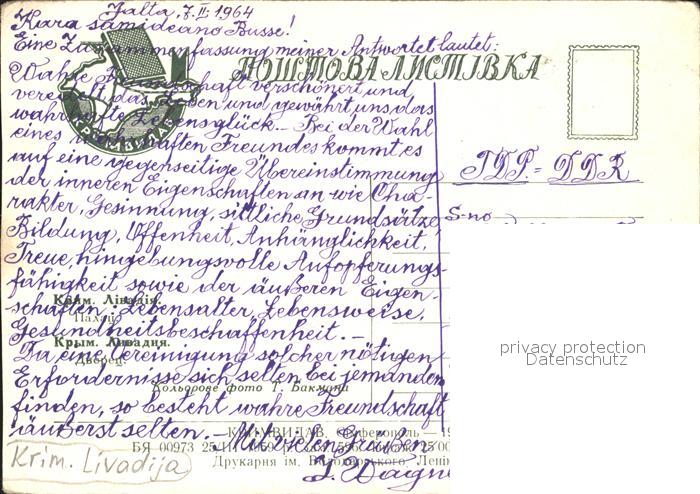 Jalta, 7. II. 1964
Kara samideano Busse!
Eine Zusammenfassung meiner Antwort lautet:
Wahre Freundschaft verschönert und
veredelt das Leben und gewährt uns das
wahrhafte Lebensglück. – Bei der Wahl
eines wahrhaften Freundes kommt es
auf eine gegenseitige Übereinstimmung
der inneren Eigenschaften an wie Cha-
rakter, Gesinnung, sittliche Grundsätze,
Bildung, Offenheit, Anhänglichkeit,
Treue, hingebungsvolle Aufopferungs-
fähigkeit sowie der äußeren Eigen-
schaften: Lebensalter, Lebensweise,
Gesundheitsbeschaffenheit. –
Da eine Vereinigung solcher nötigen
Erfordernisse sich selten bei jemanden
finden, so besteht wahre Freundschaft
äußerst selten. – Mit vielen Grüßen
ПОШТОВА ЛИСТІВКА
КРИМВИДАВ
ГДР = DDR
S-no
Крим. Лівадія.
Палац.
Крым. Ливадия.
Дворец.
Кольорове фото Т. Бакмана
КРИМВИДАВ, Сімферополь
БЯ 00973
Друкарня ім.
Krim. Livadija
privacy protection
Datenschutz